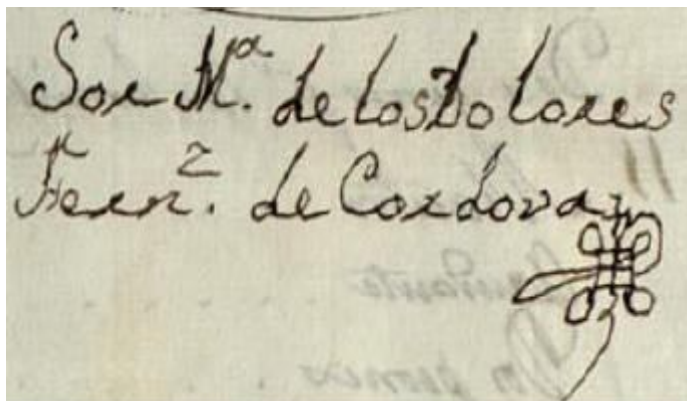 Sor M.ª de los Dolores
Fern.z de Cordova